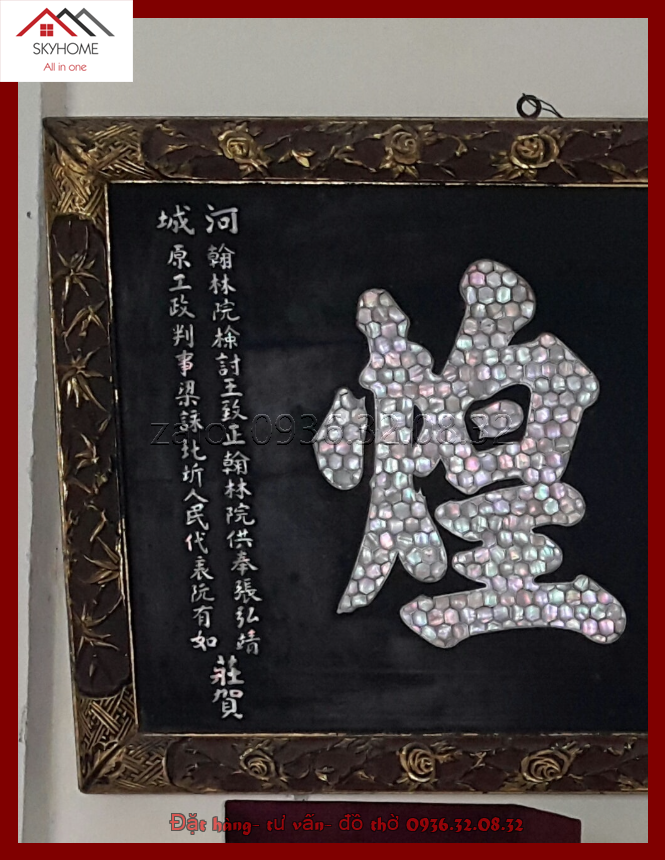 SKYHOME
All in one
煌
河 翰林院檢討王致正翰林院供奉張弘靖
城 原工政判事梁詠北圻人民代表阮有如
莊賀
zalo: 0936.32.08.32
Đặt hàng- tư vấn- đồ thờ 0936.32.08.32